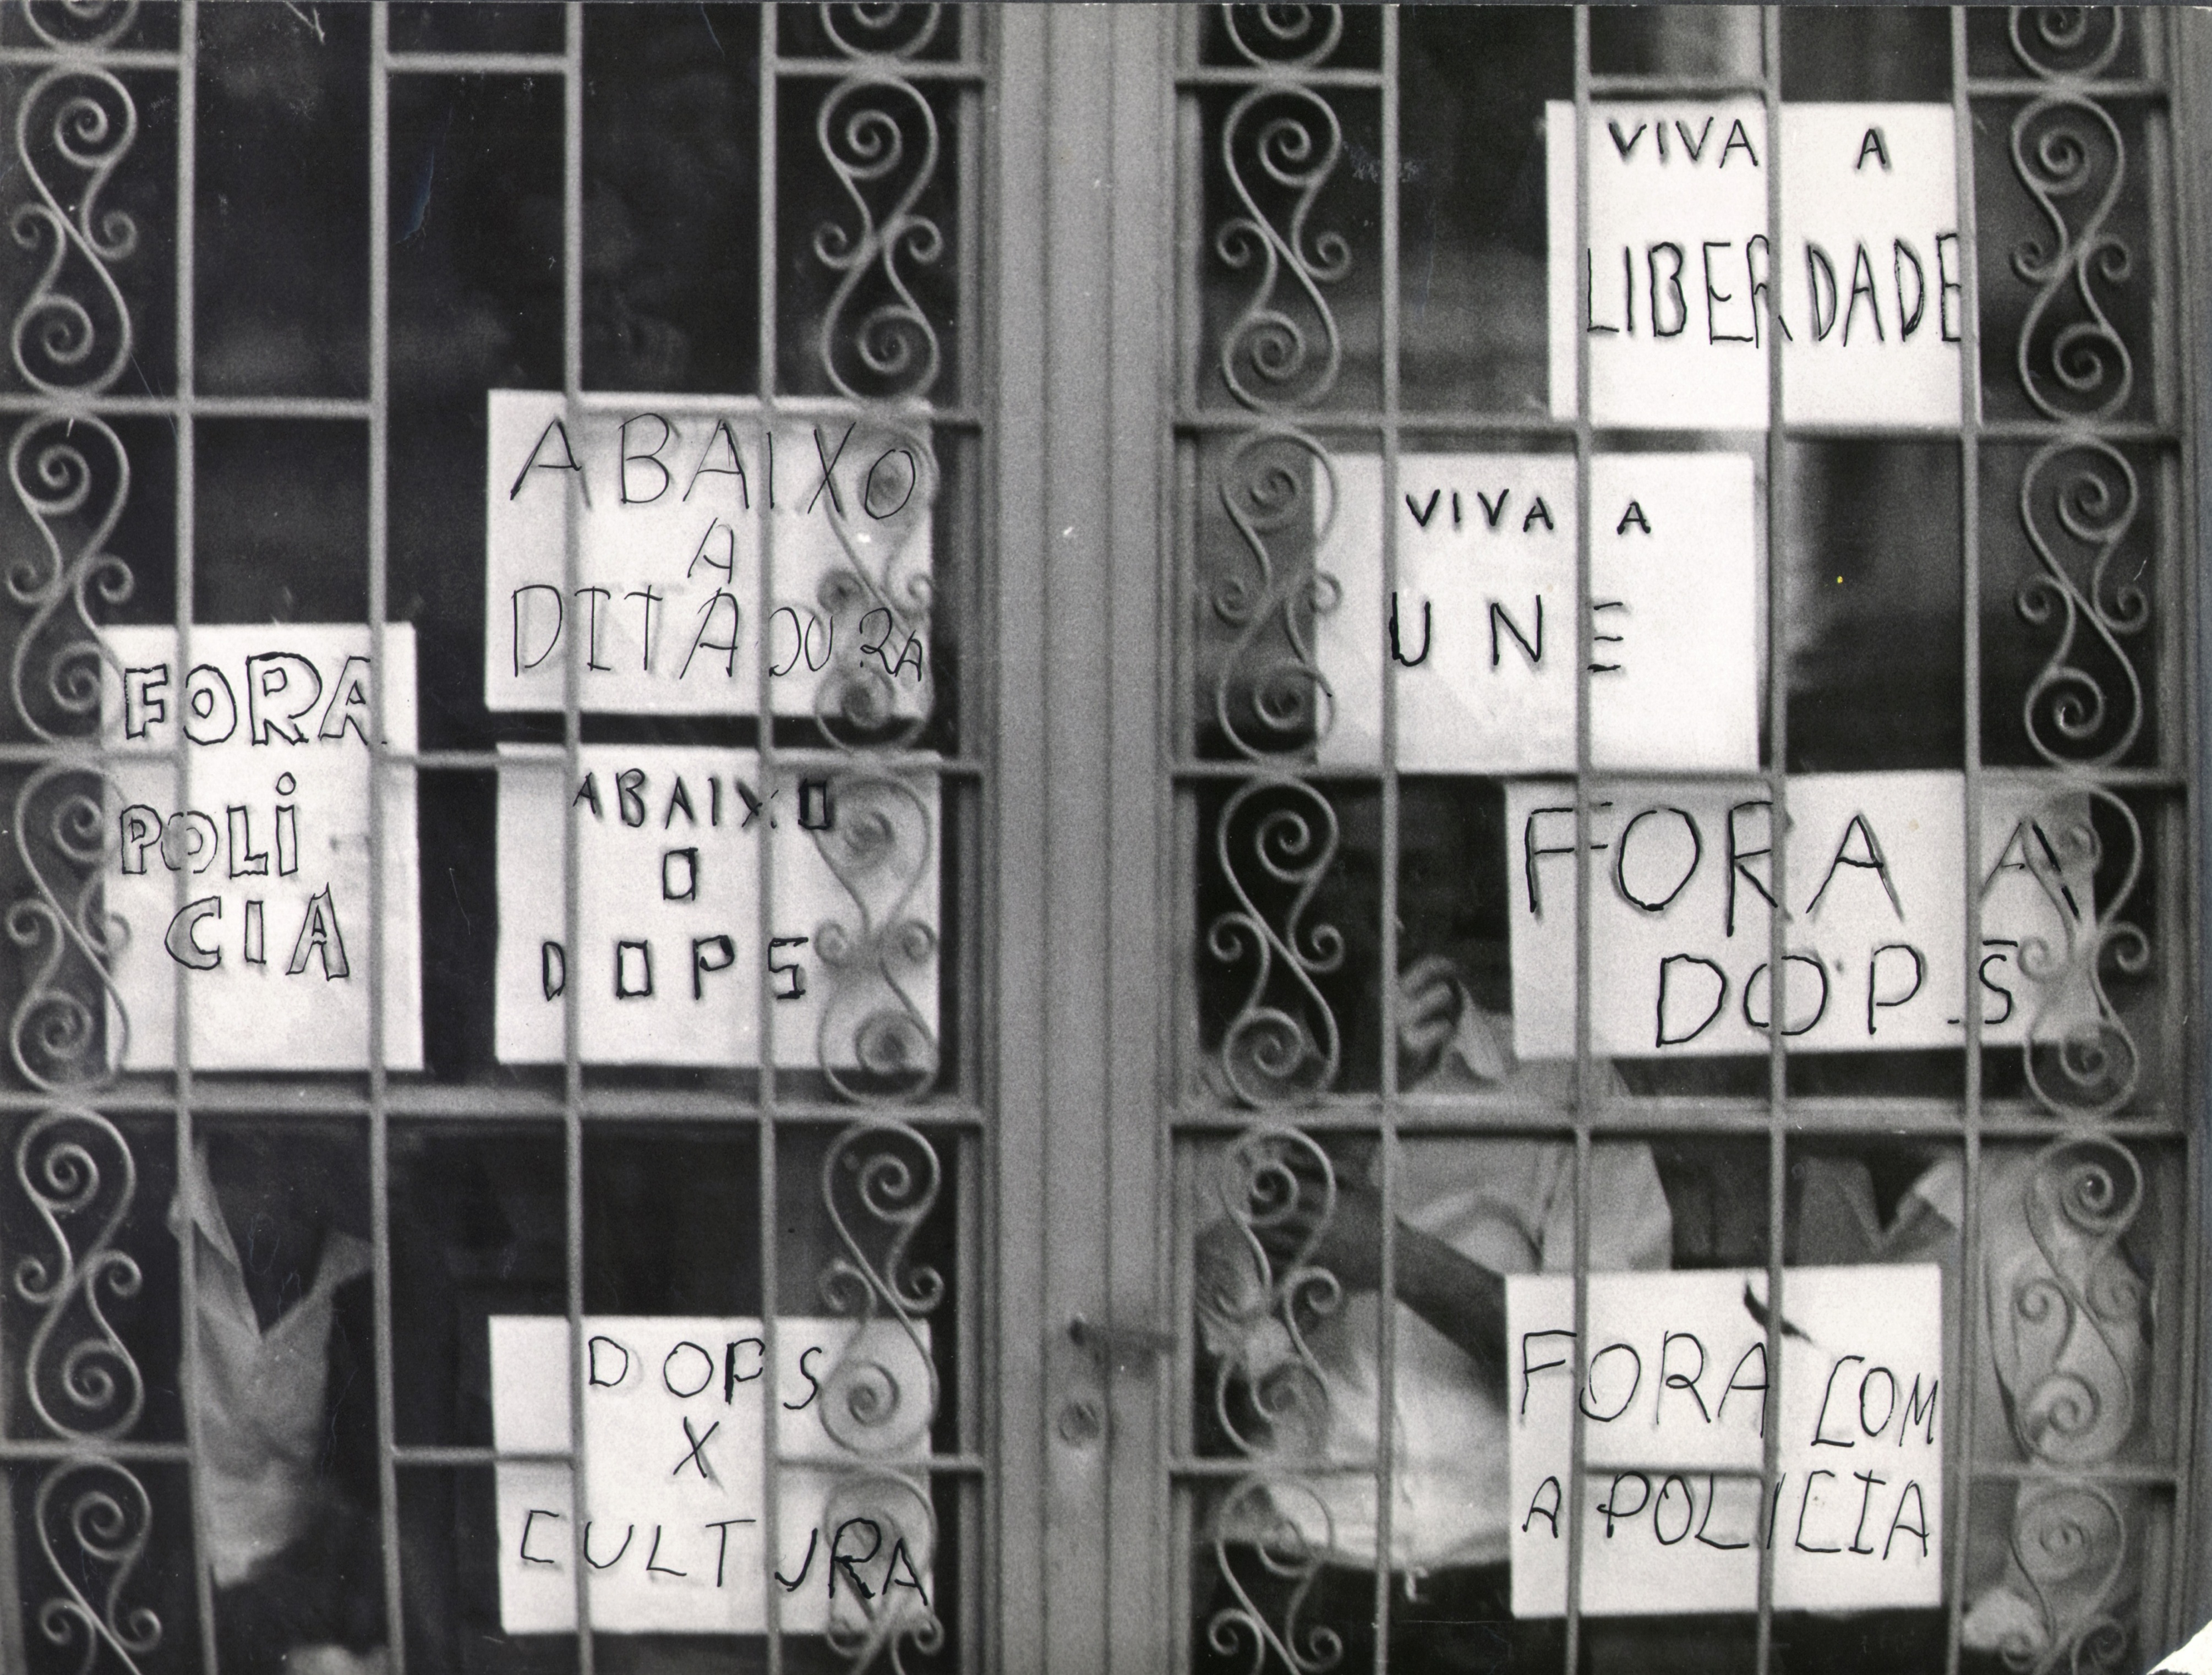 FORA
POLi
CIA
ABAIXO
A
DITADURA
ABAIXO
O
DOPS
DOPS
X
CULTURA
VIVA A
LIBERDADE
VIVA A
UNE
FORA A
DOPS
FORA COM
A POLICIA